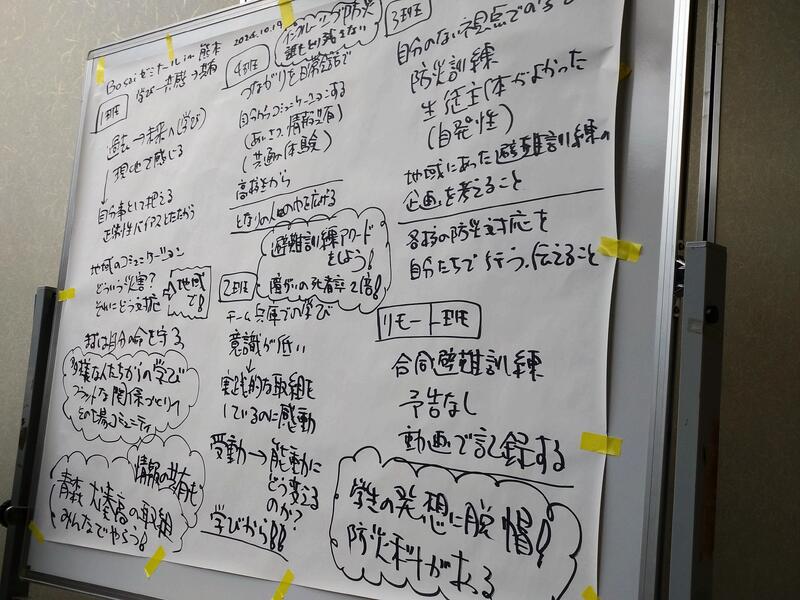 Bosaiゼミナール in 熊本
2024.10.19
学び→共感→共有
1班
過去→未来へ(学び)
現地で感じる
自分事として捉える
正常性バイアスとたたかう
地域のコミュニケーション
どういう災害?
それにどう対応
地域で!
まずは自分の命を守る
多様な人たちからの学び
フラットな関係づくり
その場コミュニティ
情報の共有も
青森 大湊高の取組
みんなでやろう!
4班
インクルーシブ防災
誰もとり残さない
つながりを日常会話で
自分からコミュニケーションする
(あいさつ、情報共有)
(共通の体験)
高校生から
となりの人 の中を広げる
避難訓練アワード
をしよう!
障がいの死者率2倍!
2班
チーム兵庫での学び
意識が低い
実践的な取組を
しているのに感動
受動→能動に
どう変える
のか?
学びから!!
3班
自分のない視点での
防災訓練
生徒主体がよかった
(自発性)
地域にあった避難訓練の
企画を考えること
各校の防災対応を
自分たちで行う、伝えること
リモート班
合同避難訓練
予告なし
動画で記録する
学生の発想に脱帽!
防災科がある